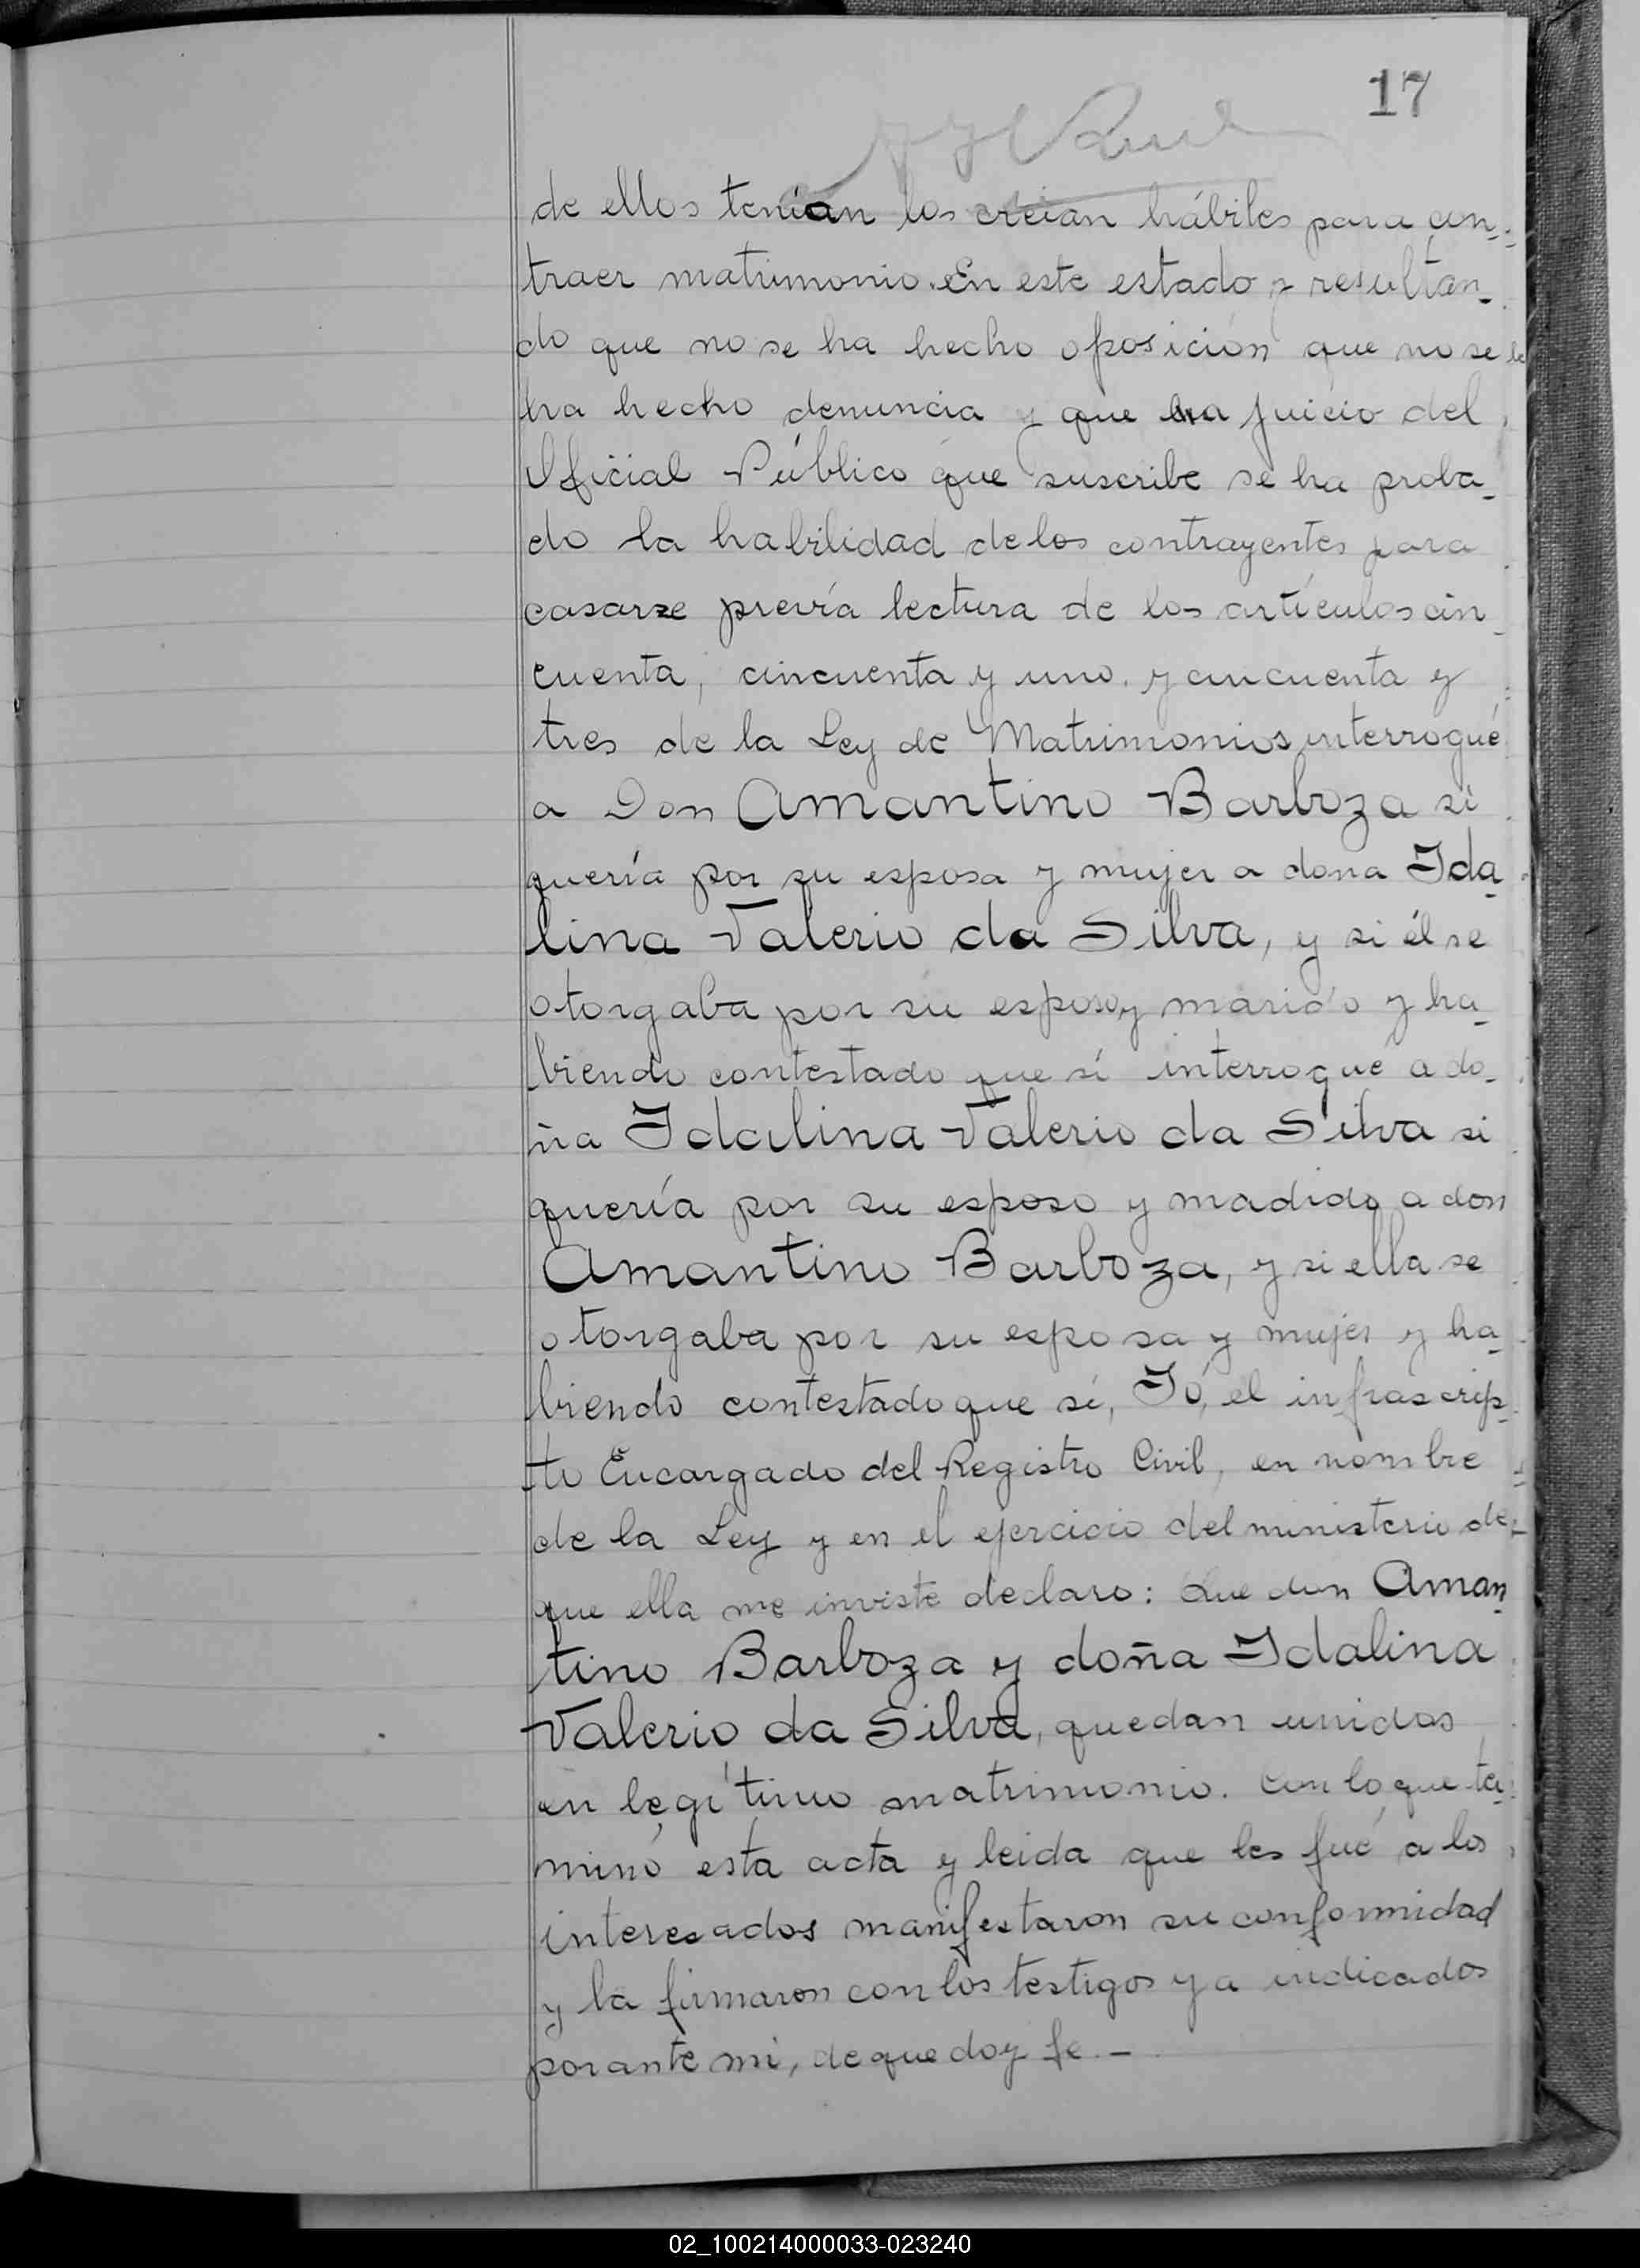 17
de ellos tenían los creían hábiles para con-
traer matrimonio. En este estado y resultan-
do que no se ha hecho oposición que no se le
ha hecho denuncia y que a juicio del
Oficial Público que suscribe se ha proba-
do la habilidad de los contrayentes para
casarse previa lectura de los artículos cin-
cuenta, cincuenta y uno y cincuenta y
tres de la Ley de Matrimonios interrogué
a Don Amantino Barboza si
quería por su esposa y mujer a dona Ida-
lina Valerio da Silva, y si él se
otorgaba por su esposo y marido y ha-
biendo contestado que sí interrogué a do-
ña Idalina Valerio da Silva si
quería por su esposo y madido a don
Amantino Barboza, y si ella se
otorgaba por su esposa y mujer y ha-
biendo contestado que sí, Yó, el infrascrip-
to Encargado del Registro Civil, en nombre
de la Ley y en el ejercicio del ministerio de
que ella me inviste declaro: Que don Aman-
tino Barboza y doña Idalina
Valerio da Silva, quedan unidos
en legítimo matrimonio. Con lo que ter-
minó esta acta y leida que les fué a los
interesados manifestaron su conformidad
y la firmaron con los testigos ya indicados
por ante mi, de que doy fe.-
02_100214000033-023240